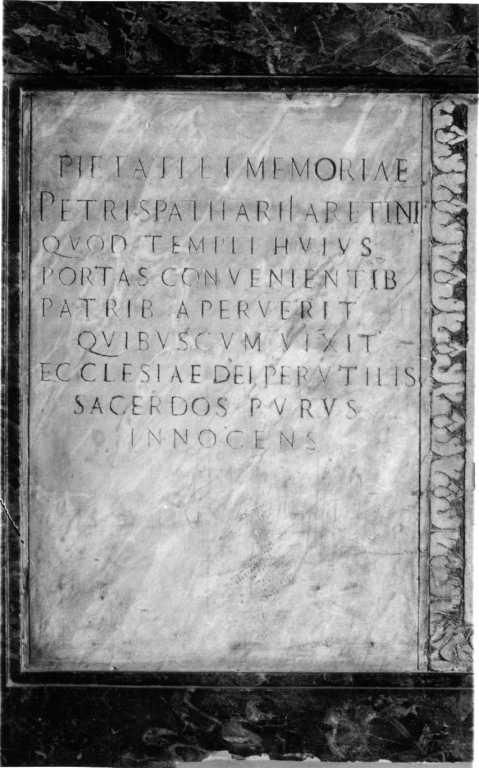 PIETATI ET MEMORIAE
PETRI·SPATHARII ARETINI
QVOD TEMPLI HVIVS
PORTAS CONVENIENTIB
PATRIB APERVERIT
QVIBVSCVM VIXIT
ECCLESIAE DEI PERVTILIS
SACERDOS PVRVS
INNOCENS